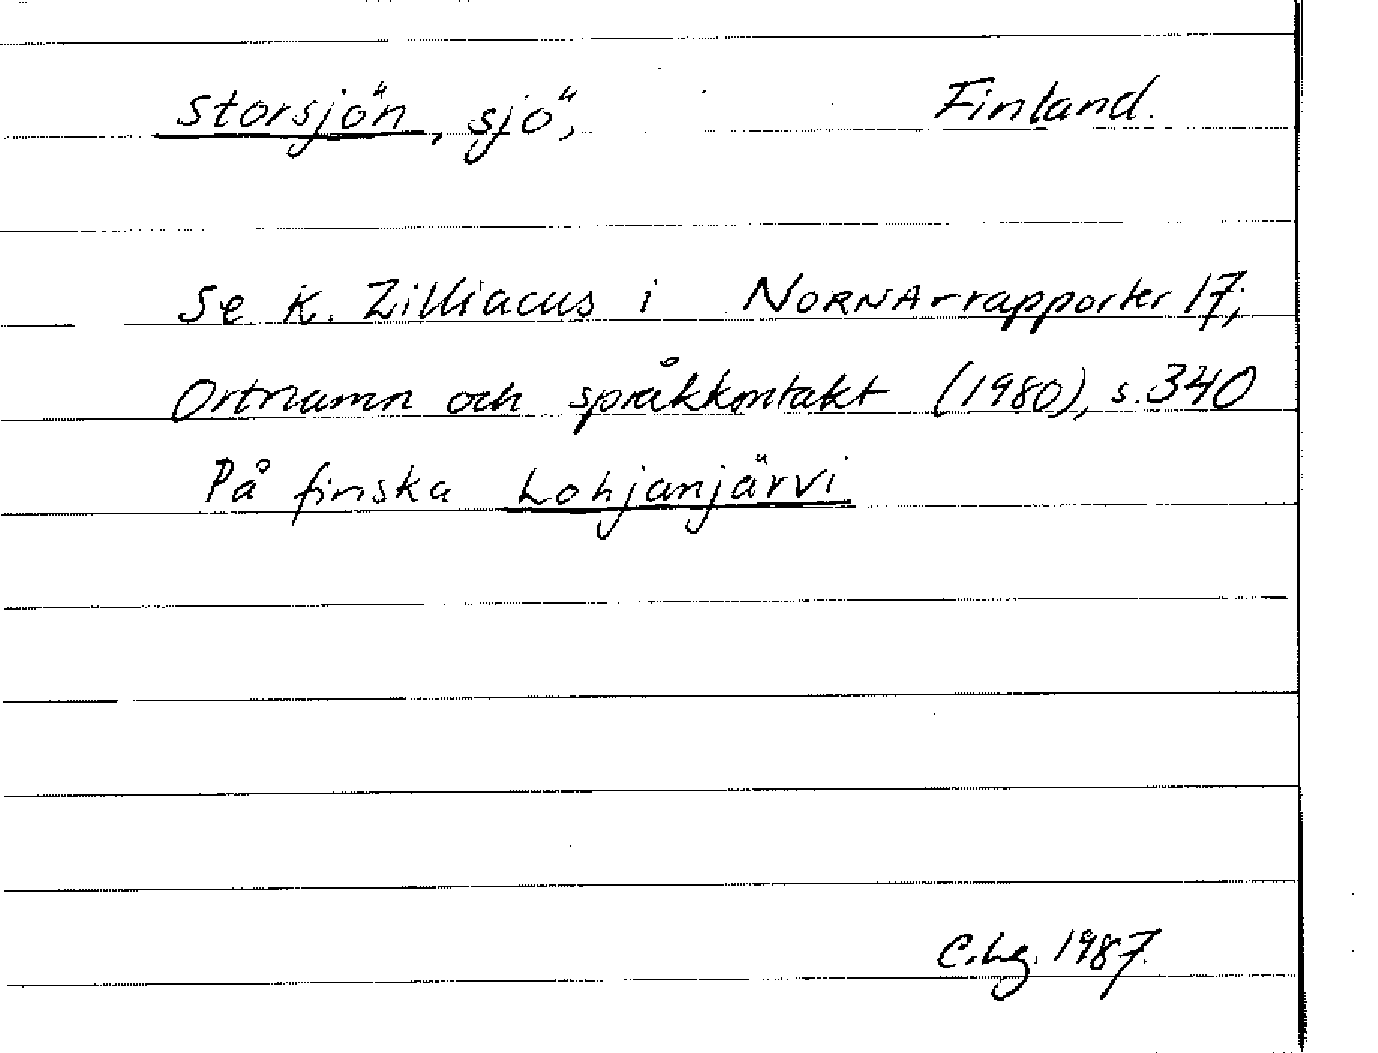 Storsjön, sjö, Finland.
Se K. Zilliacus i NORNA-rapporter 17;
Ortnamn och språkkontakt (1980), s. 340
På finska Lohjanjärvi
C.Lg. 1987.